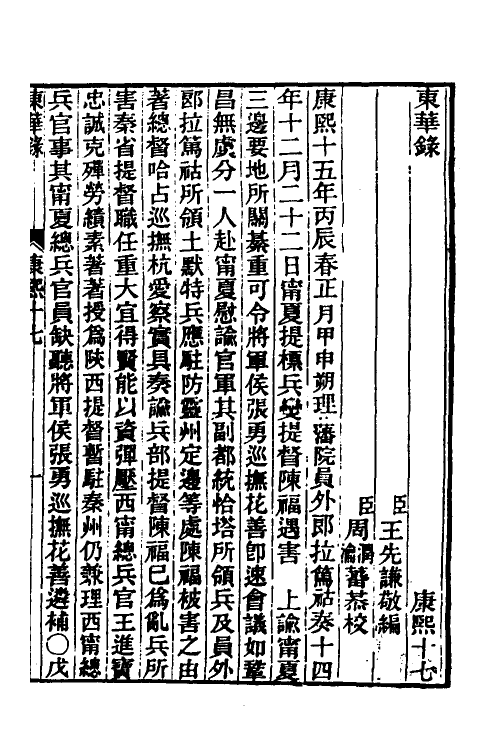 東華錄　康熙十七
臣王先謙敬編
臣周潤蕃周瀹蕃恭校
康熙十五年丙辰春正月甲申朔理藩院員外郎拉篤祜奏十四
年十二月二十二日甯夏提標兵變提督陳福遇害　上諭甯夏
三邊要地所關綦重可令將軍侯張勇巡撫花善卽速會議如鞏
昌無虞分一人赴甯夏慰諭官軍其副都統恰塔所領兵及員外
郎拉篤祜所領土默特兵應駐防靈州定邊等處陳福被害之由
著總督哈占巡撫杭愛察實具奏諭兵部提督陳福已爲亂兵所
害秦省提督職任重大宜得賢能以資彈壓西甯總兵官王進寶
忠誠克殫勞績素著著授爲陝西提督暫駐秦州仍兼理西甯總
兵官事其甯夏總兵官員缺聽將軍侯張勇巡撫花善遴補○戊
東華錄　康熙十七　一